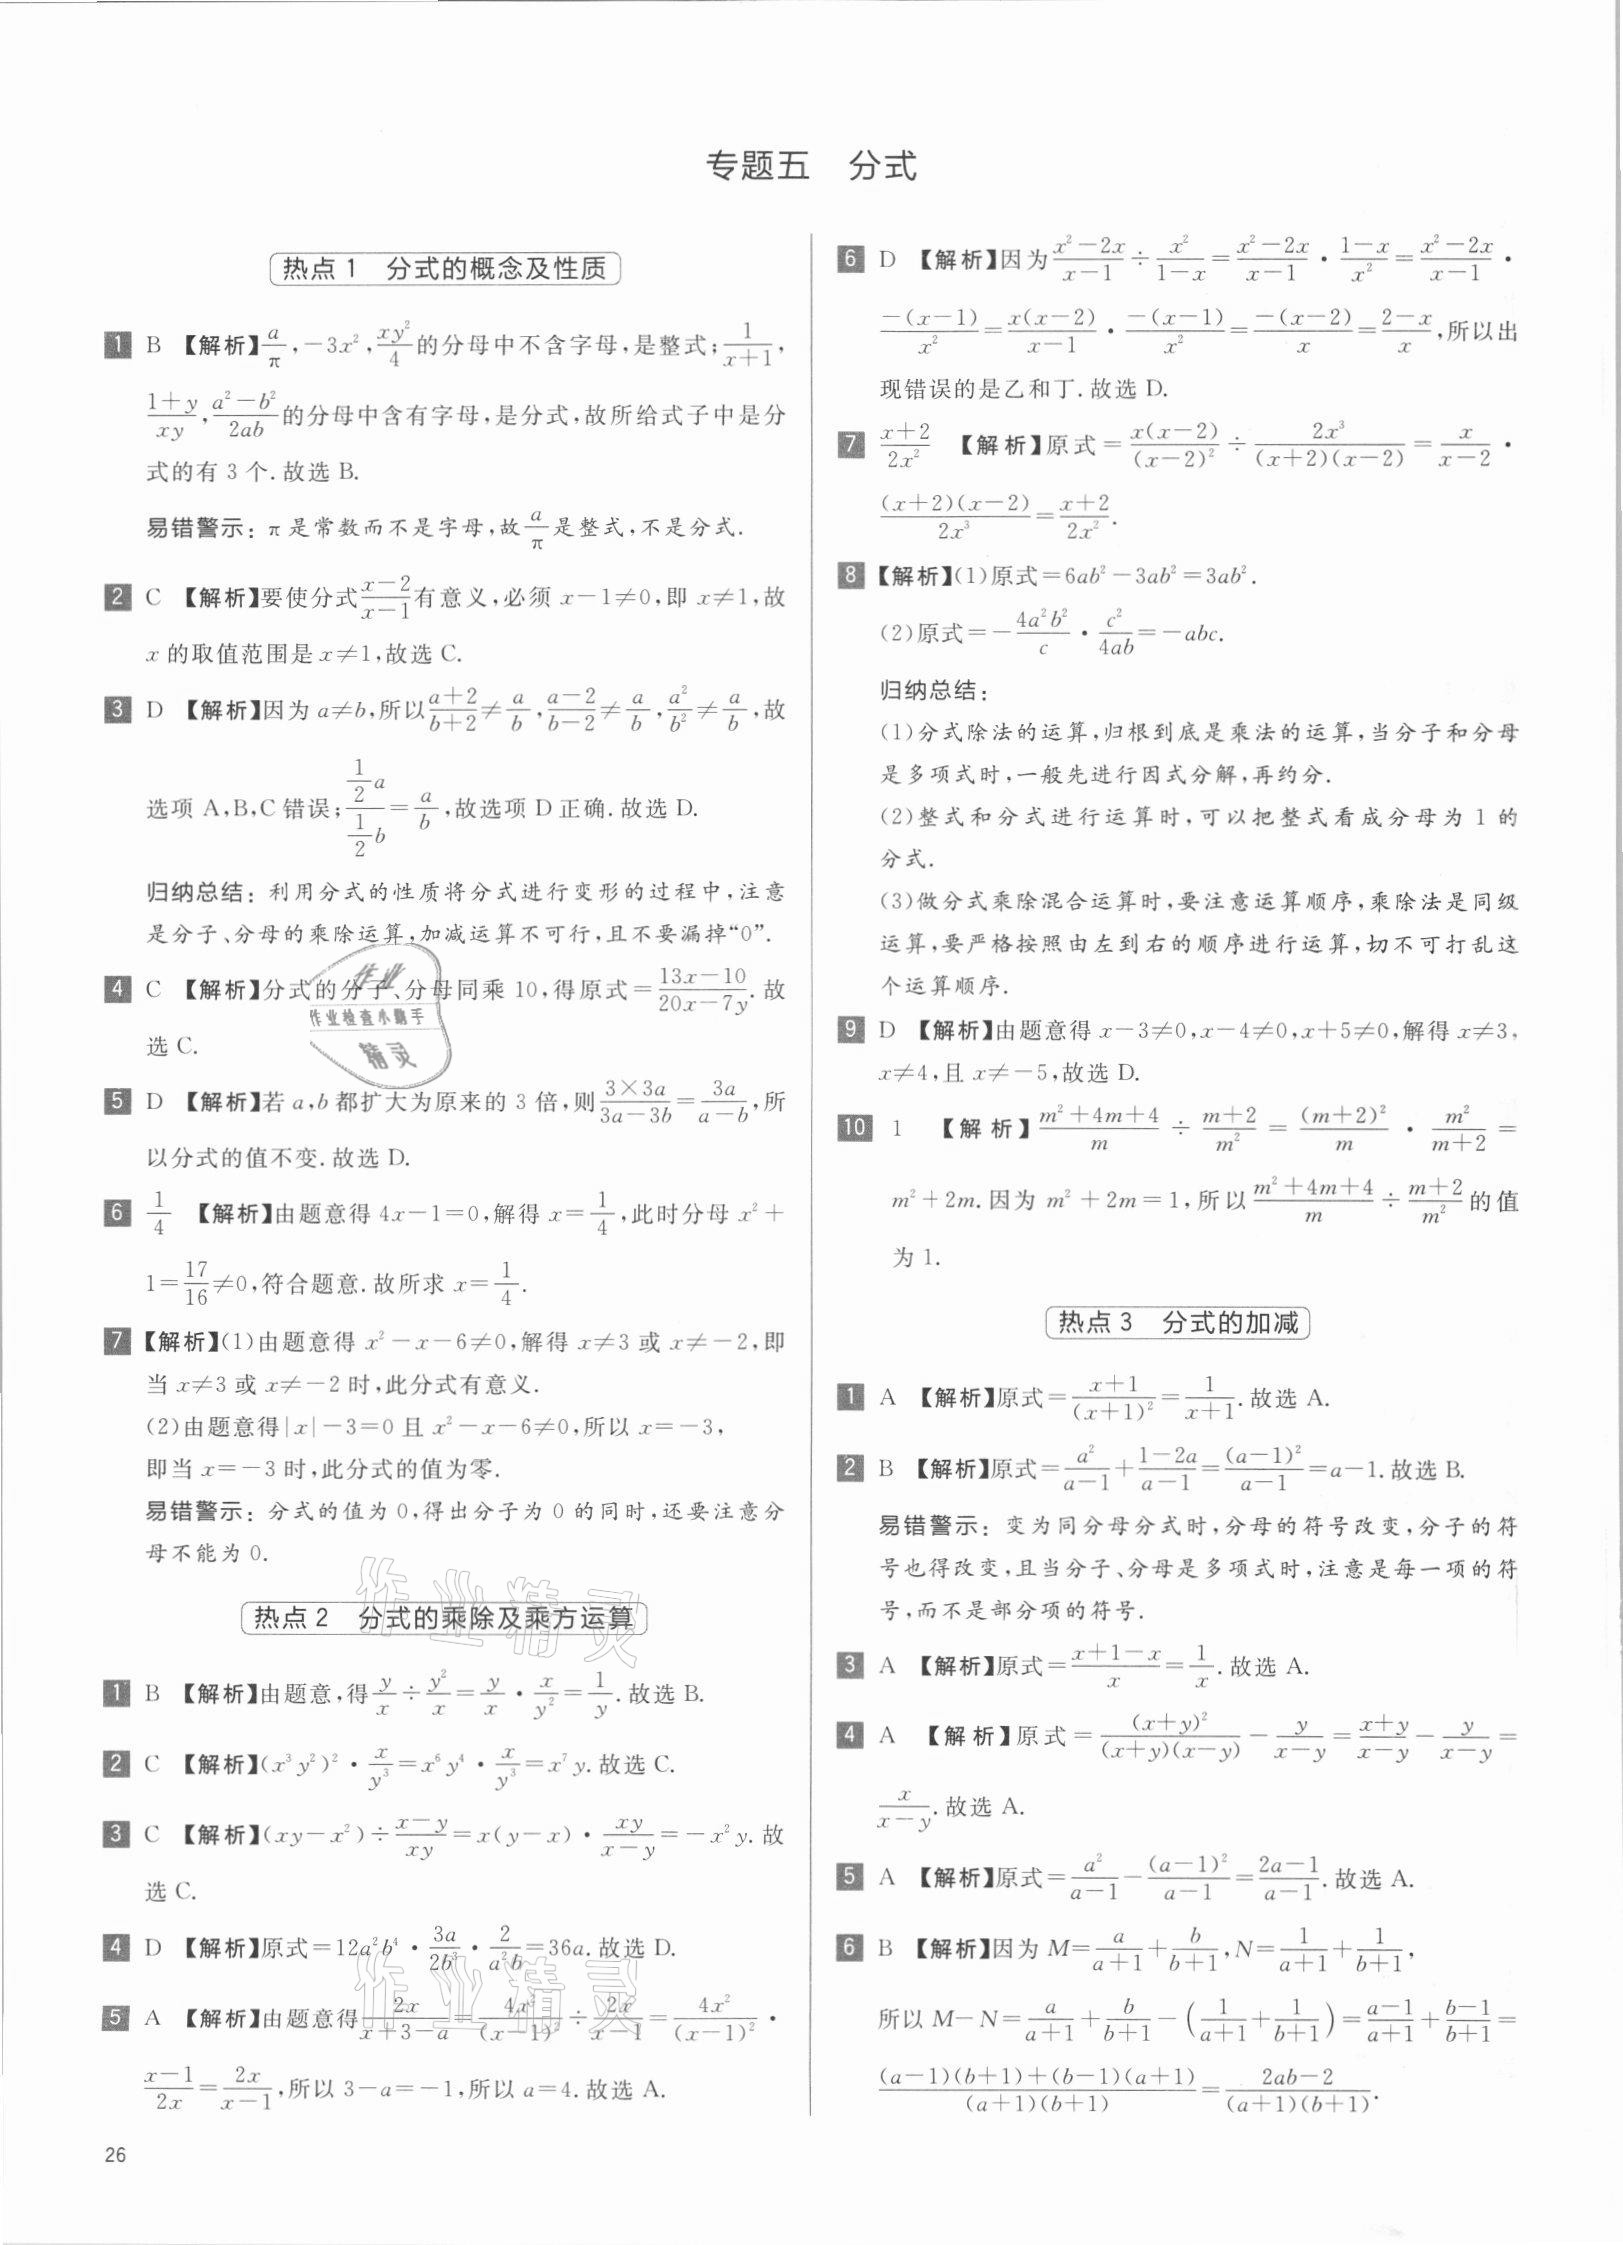 专题五　分式
热点 1　分式的概念及性质
1 B 【解析】a/π,-3x²,xy²/4的分母中不含字母,是整式;1/(x+1),
(1+y)/xy,(a²-b²)/2ab的分母中含有字母,是分式,故所给式子中是分
式的有 3 个.故选 B.
易错警示: π 是常数而不是字母,故a/π是整式,不是分式.
2 C 【解析】要使分式(x-2)/(x-1)有意义,必须 x-1≠0,即 x≠1,故
x 的取值范围是 x≠1,故选 C.
3 D 【解析】因为 a≠b,所以(a+2)/(b+2)≠a/b,(a-2)/(b-2)≠a/b,a²/b²≠a/b,故
选项 A,B,C 错误;(1/2 a)/(1/2 b)=a/b,故选项 D 正确.故选 D.
归纳总结: 利用分式的性质将分式进行变形的过程中,注意
是分子、分母的乘除运算,加减运算不可行,且不要漏掉“0”.
4 C 【解析】分式的分子、分母同乘 10,得原式=(13x-10)/(20x-7y).故
选 C.
5 D 【解析】若 a,b 都扩大为原来的 3 倍,则(3×3a)/(3a-3b)=3a/(a-b),所
以分式的值不变.故选 D.
6 1/4 【解析】由题意得 4x-1=0,解得 x=1/4,此时分母 x²+
1=17/16≠0,符合题意.故所求 x=1/4.
7 【解析】(1)由题意得 x²-x-6≠0,解得 x≠3 或 x≠-2,即
当 x≠3 或 x≠-2 时,此分式有意义.
(2)由题意得|x|-3=0 且 x²-x-6≠0,所以 x=-3,
即当 x=-3 时,此分式的值为零.
易错警示: 分式的值为 0,得出分子为 0 的同时,还要注意分
母不能为 0.
热点 2　分式的乘除及乘方运算
1 B 【解析】由题意,得y/x÷y²/x=y/x·x/y²=1/y.故选 B.
2 C 【解析】(x³y²)²·x/y³=x⁶y⁴·x/y³=x⁷y.故选 C.
3 C 【解析】(xy-x²)÷(x-y)/xy=x(y-x)·xy/(x-y)=-x²y.故
选 C.
4 D 【解析】原式=12a²b⁴·3a/2b³·2/a²b=36a.故选 D.
5 A 【解析】由题意得2x/(x+3-a)=4x²/(x-1)²÷2x/(x-1)=4x²/(x-1)²·
(x-1)/2x=2x/(x-1),所以 3-a=-1,所以 a=4.故选 A.
26
6 D 【解析】因为(x²-2x)/(x-1)÷x²/(1-x)=(x²-2x)/(x-1)·(1-x)/x²=(x²-2x)/(x-1)·
-(x-1)/x²=x(x-2)/(x-1)·-(x-1)/x²=-(x-2)/x=(2-x)/x,所以出
现错误的是乙和丁.故选 D.
7 (x+2)/2x² 【解析】原式=x(x-2)/(x-2)²÷2x³/(x+2)(x-2)=x/(x-2)·
(x+2)(x-2)/2x³=(x+2)/2x².
8 【解析】(1)原式=6ab²-3ab²=3ab².
(2)原式=-4a²b²/c·c²/4ab=-abc.
归纳总结:
(1)分式除法的运算,归根到底是乘法的运算,当分子和分母
是多项式时,一般先进行因式分解,再约分.
(2)整式和分式进行运算时,可以把整式看成分母为 1 的
分式.
(3)做分式乘除混合运算时,要注意运算顺序,乘除法是同级
运算,要严格按照由左到右的顺序进行运算,切不可打乱这
个运算顺序.
9 D 【解析】由题意得 x-3≠0,x-4≠0,x+5≠0,解得 x≠3,
x≠4,且 x≠-5,故选 D.
10 1 【解析】(m²+4m+4)/m÷(m+2)/m²=(m+2)²/m·m²/(m+2)=
m²+2m.因为 m²+2m=1,所以(m²+4m+4)/m÷(m+2)/m²的值
为 1.
热点 3　分式的加减
1 A 【解析】原式=(x+1)/(x+1)²=1/(x+1).故选 A.
2 B 【解析】原式=a²/(a-1)+(1-2a)/(a-1)=(a-1)²/(a-1)=a-1.故选 B.
易错警示: 变为同分母分式时,分母的符号改变,分子的符
号也得改变,且当分子、分母是多项式时,注意是每一项的符
号,而不是部分项的符号.
3 A 【解析】原式=(x+1-x)/x=1/x.故选 A.
4 A 【解析】原式=(x+y)²/(x+y)(x-y)-y/(x-y)=(x+y)/(x-y)-y/(x-y)=
x/(x-y).故选 A.
5 A 【解析】原式=a²/(a-1)-(a-1)²/(a-1)=(2a-1)/(a-1).故选 A.
6 B 【解析】因为 M=a/(a+1)+b/(b+1),N=1/(a+1)+1/(b+1),
所以 M-N=a/(a+1)+b/(b+1)-(1/(a+1)+1/(b+1))=(a-1)/(a+1)+(b-1)/(b+1)=
((a-1)(b+1)+(b-1)(a+1))/(a+1)(b+1)=(2ab-2)/(a+1)(b+1).
作业
作业检查小助手
精灵
作业精灵
作业精灵